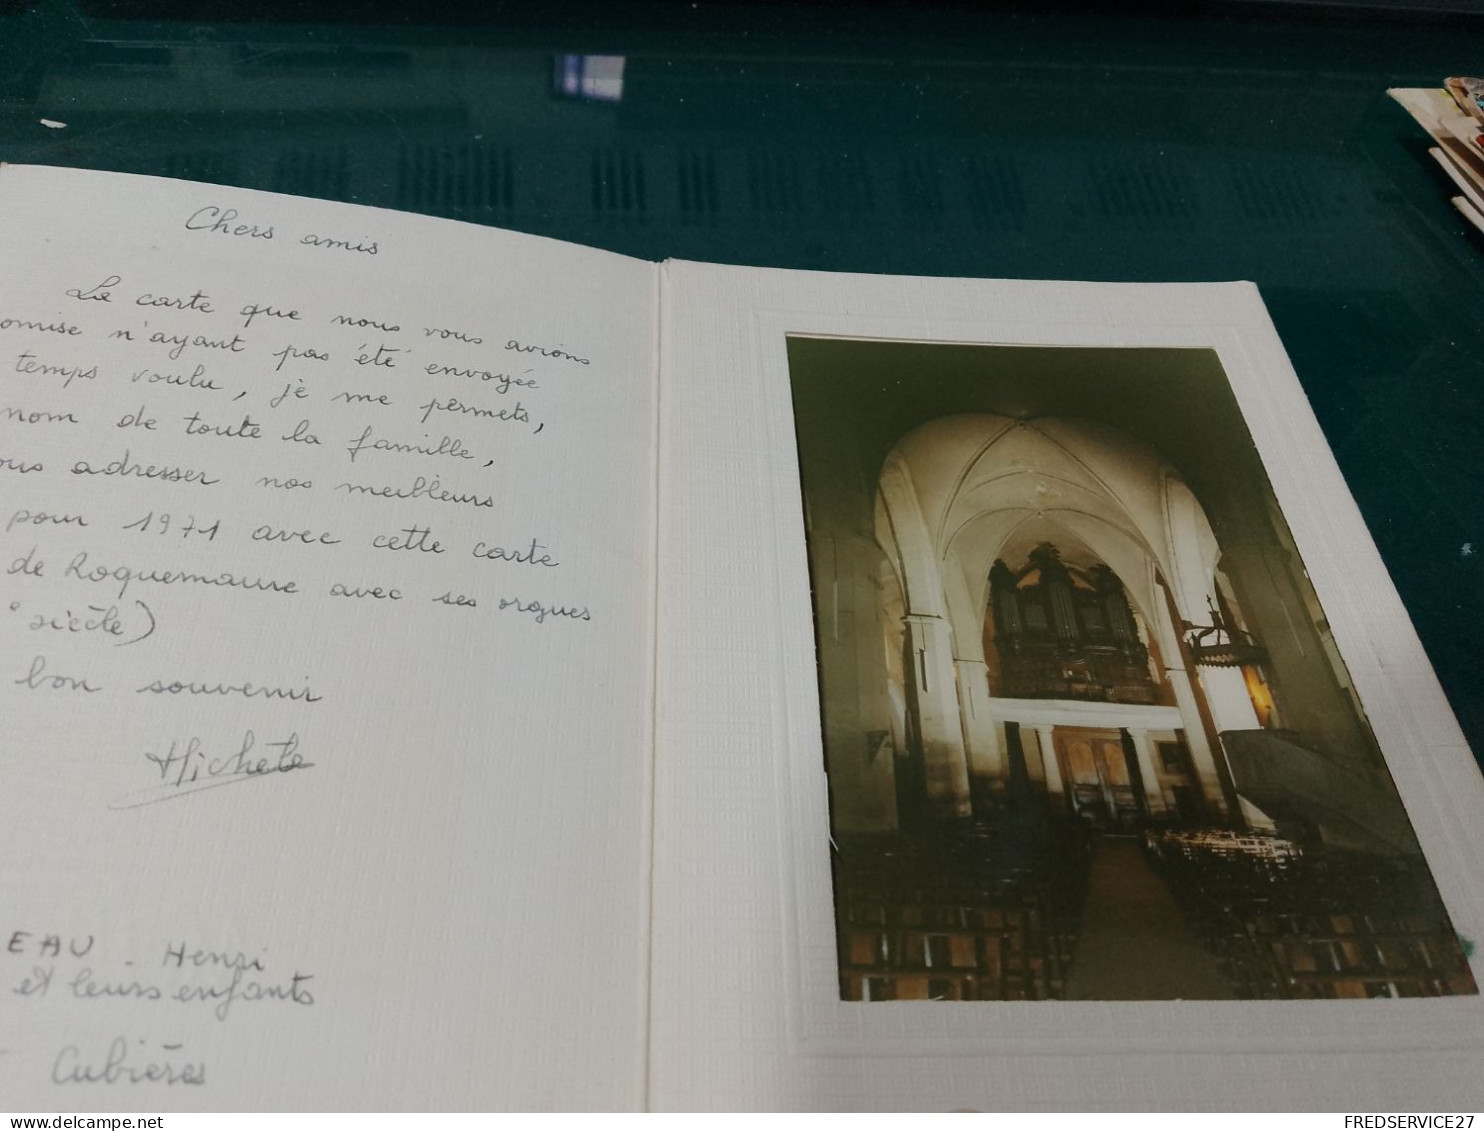 Chers amis
La carte que nous vous avions
omise n'ayant pas été envoyée
temps voulu, je me permets,
nom de toute la famille,
ous adresser nos meilleurs
pour 1971 avec cette carte
de Roquemaure avec ses orgues
e siècle)
bon souvenir
Michèle
EAU - Henri
et leurs enfants
Cubières
FREDSERVICE27